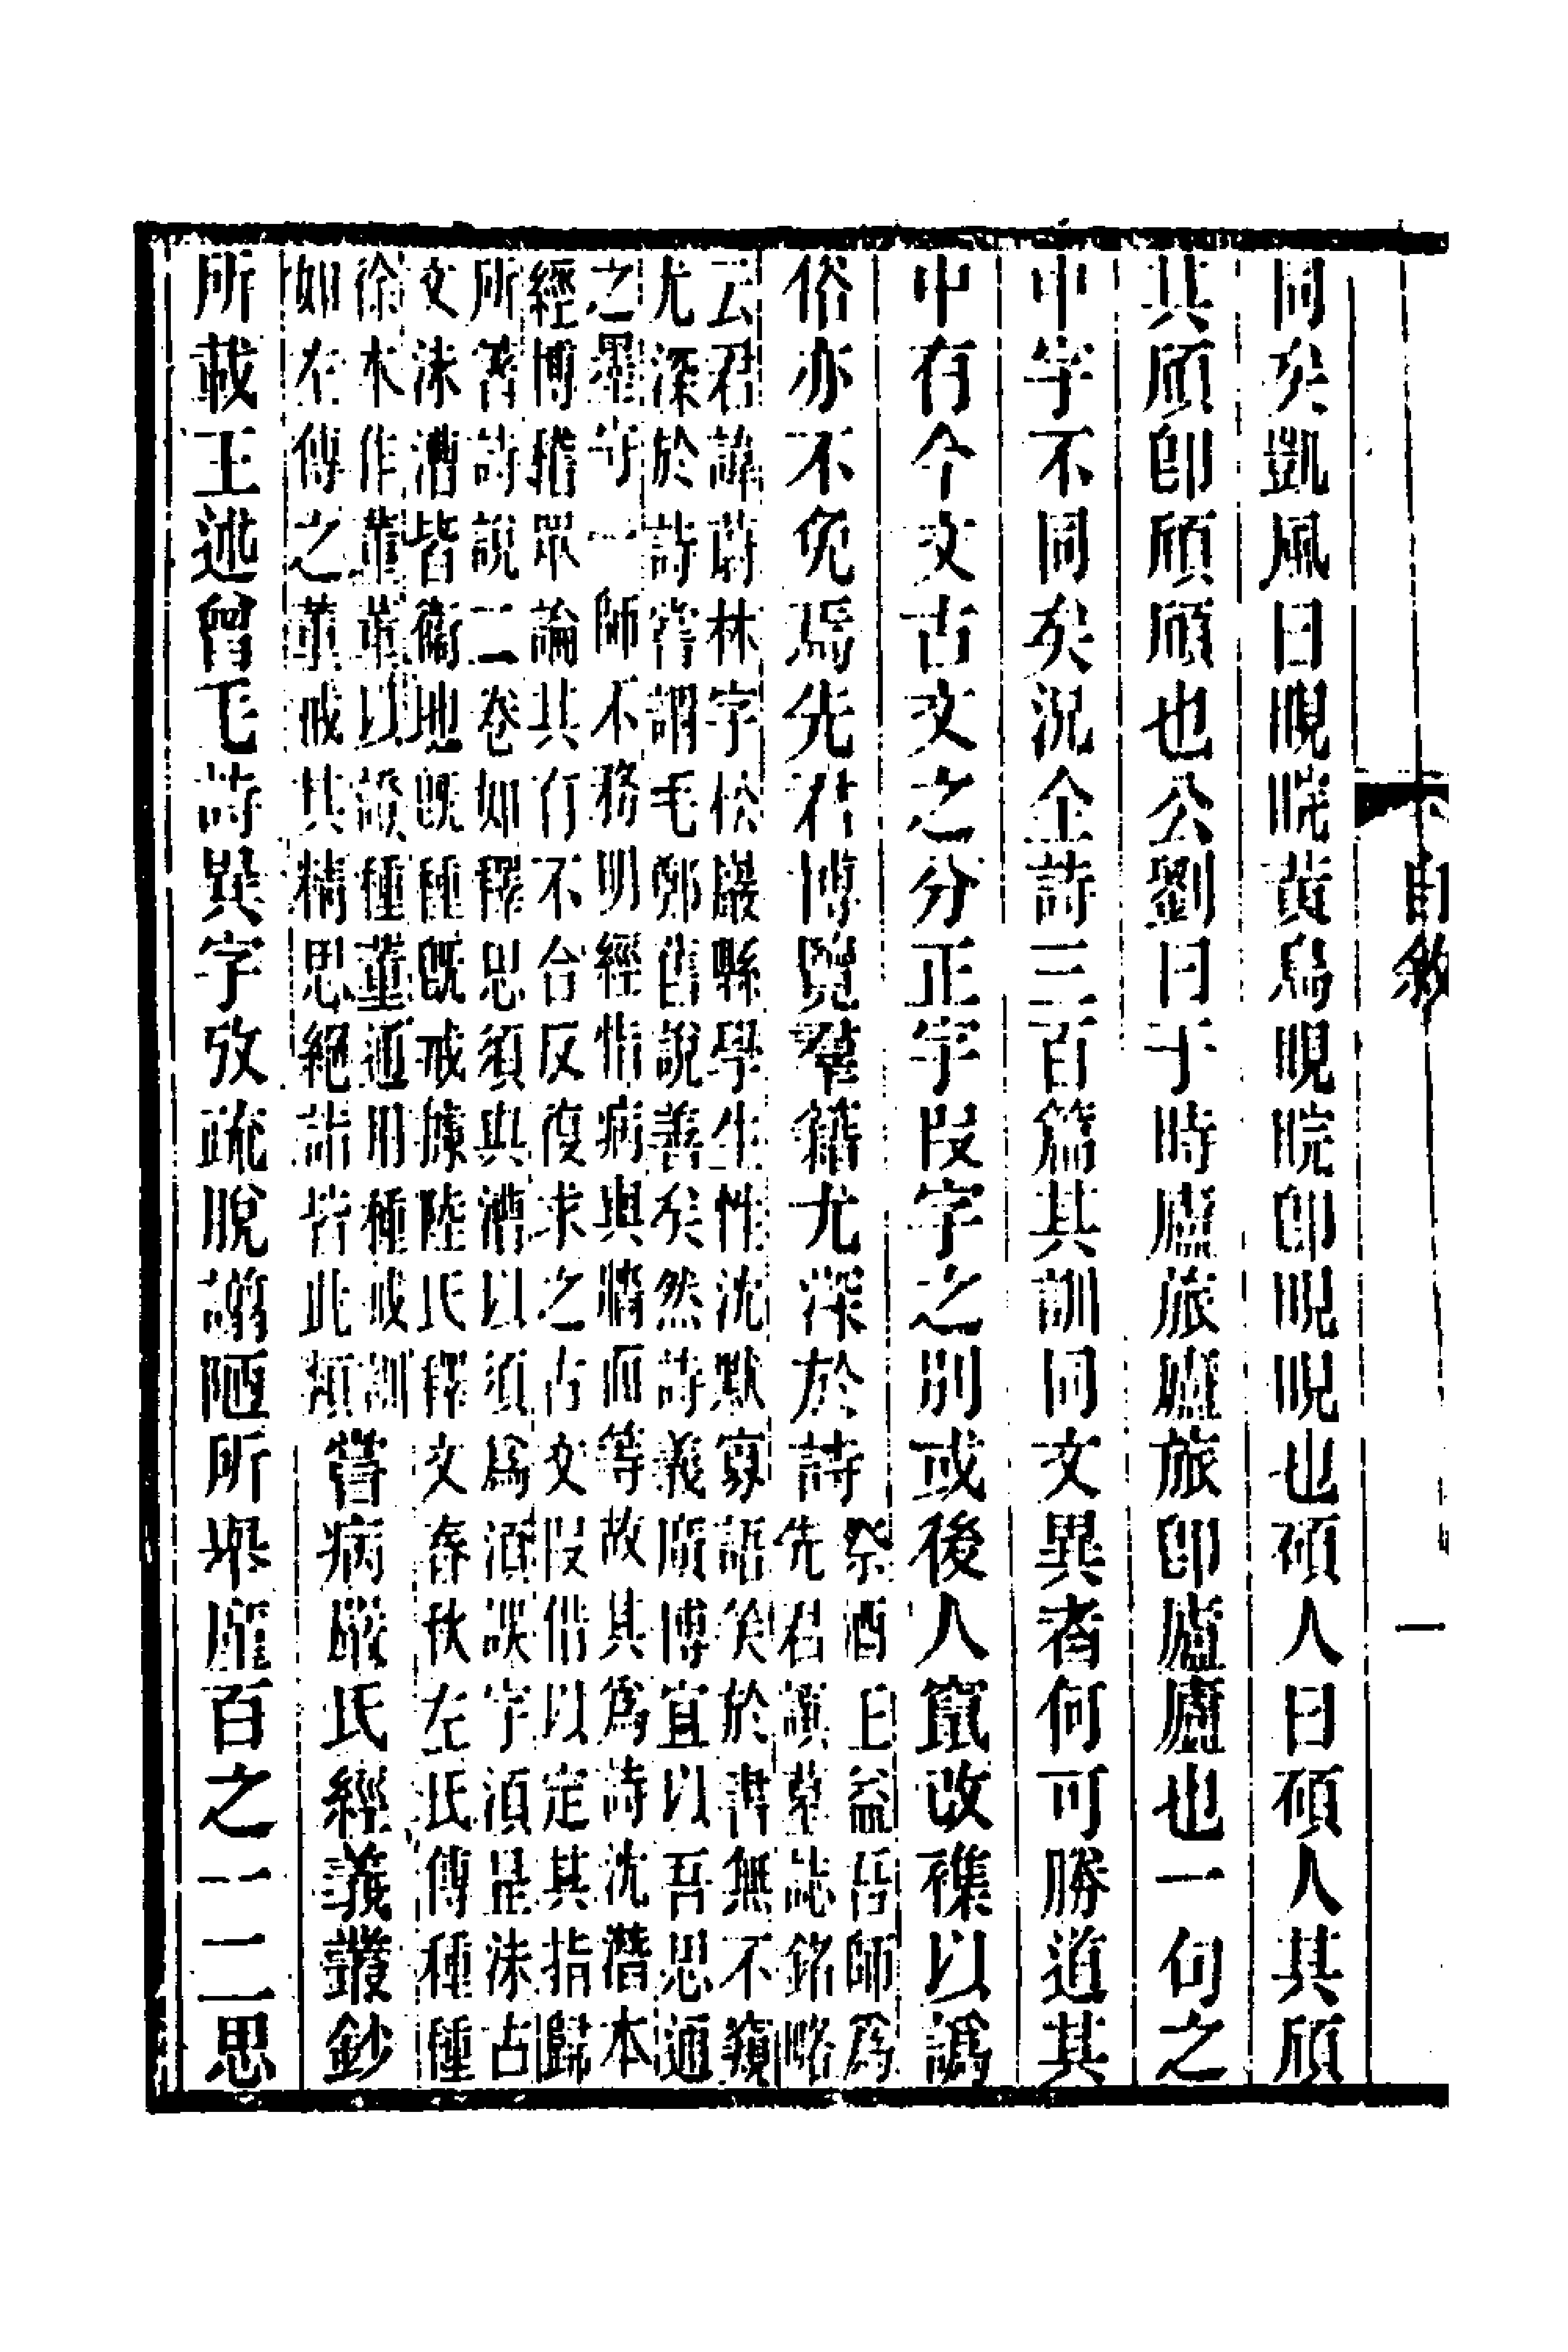 自敘　一
同矣凱風曰睍睆黃鳥睍睆卽睍睍也碩人曰碩人其頎
其頎卽頎頎也公劉曰于時廬旅廬旅卽廬廬也一句之
中字不同矣況全詩三百篇其訓同文異者何可勝道其
中有今文古文之分正字叚字之別或後人竄改襍以譌
俗亦不免焉先君博覽羣籍尤深於詩祭酒王益吾師爲
先君譔墓誌銘略
云君諱蔚林字松巖縣學生性沈默寡語笑於書無不窺
尤深於詩嘗謂毛鄭舊說善矣然詩義廣博宜以吾思通
之墨守一師不務明經恉病與牆面等故其爲詩沈潛本
經博稽眾論其有不合反復求之古文叚借以定其指歸
所箸詩說二卷如釋思須與漕以須爲湏誤字湏是沬古
文沬漕皆衞地旣種旣戒據陸氏釋文春秋左氏傳種種
徐本作董董以證種董通用種戒訓
如左傳之董戒其精思絕詣皆此類嘗病嚴氏經義叢鈔
所載王述曾毛詩異字攷疏脫謭陋所舉廑百之一二思